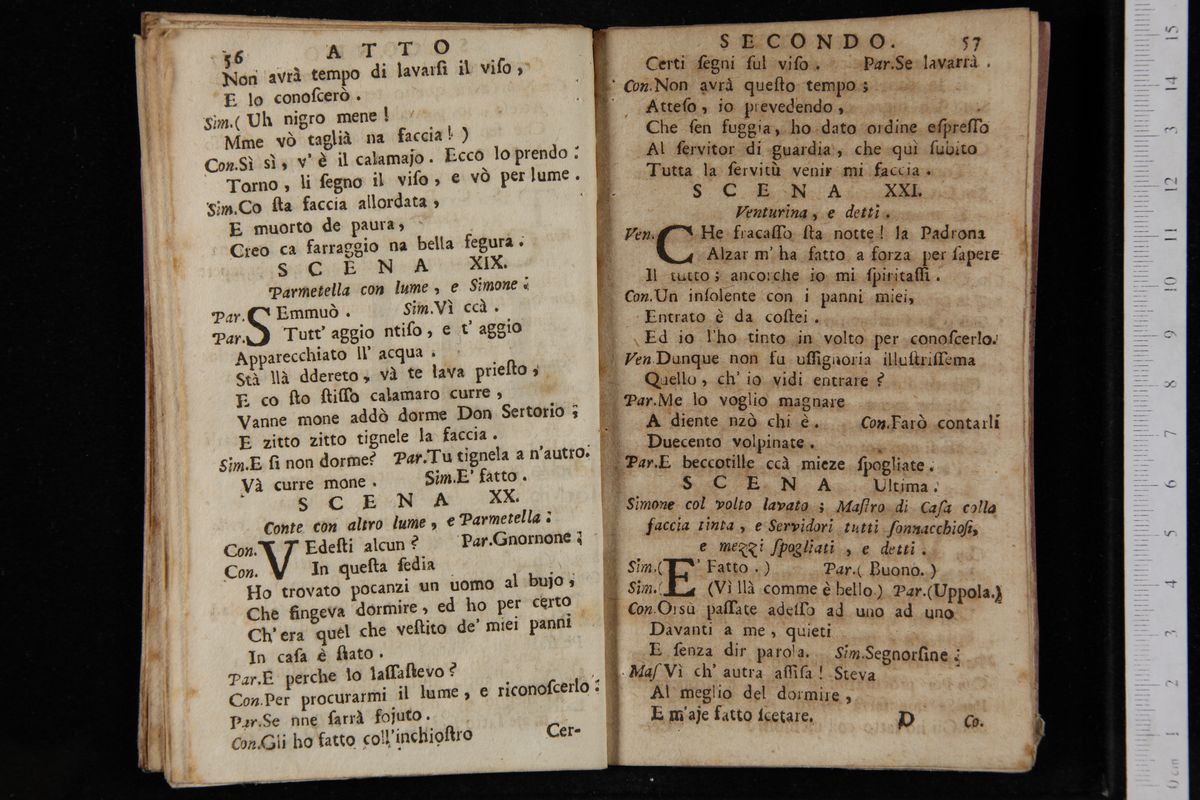 56 ATTO
Non avrà tempo di lavarſi il viſo,
E lo conoſcerò.
Sim.( Uh nigro mene!
Mme vò taglià na faccia! )
Con.Sì sì, v' è il calamajo. Ecco lo prendo:
Torno, li ſegno il viſo, e vò per lume.
Sim.Co ſta faccia allordata,
E muorto de paura,
Creo ca farraggio na bella fegura.
SCENA XIX.
Parmetella con lume, e Simone:
Par. SEmmuò. Sim.Vì ccà.
Par. Tutt' aggio ntiſo, e t' aggio
Apparecchiato ll' acqua.
Stà llà ddereto, và te lava prieſto,
E co ſto ſtiſſo calamaro curre,
Vanne mone addò dorme Don Sertorio;
E zitto zitto tignele la faccia.
Sim.E ſi non dorme? Par.Tu tignela a n'autro.
Và curre mone. Sim.E' fatto.
SCENA XX.
Conte con altro lume, e Parmetella:
Con. VEdeſti alcun? Par.Gnornone;
Con. In queſta ſedia
Ho trovato pocanzi un uomo al bujo,
Che fingeva dormire, ed ho per certo
Ch' era quel che veſtito de' miei panni
In caſa è ſtato.
Par.E perche lo laſſaſtevo?
Con.Per procurarmi il lume, e riconoſcerlo:
Par.Se nne ſarrà fojuto.
Con.Gli ho fatto coll'inchioſtro Cer-
SECONDO. 57
Certi ſegni ſul viſo. Par.Se lavarrà.
Con.Non avrà queſto tempo;
Atteſo, io prevedendo,
Che ſen fuggia, ho dato ordine eſpreſſo
Al ſervitor di guardia, che quì ſubito
Tutta la ſervitù venir mi faccia.
SCENA XXI.
Venturina, e detti.
Ven. CHe fracaſſo ſta notte! la Padrona
Alzar m' ha fatto a forza per ſapere
Il tutto; ancorche io mi ſpiritaſſi.
Con.Un inſolente con i panni miei,
Entrato è da coſtei.
Ed io l'ho tinto in volto per conoſcerlo.
Ven.Dunque non fu uſſignoria illuſtriſſema
Quello, ch' io vidi entrare?
Par.Me lo voglio magnare
A diente nzò chi è. Con.Farò contarli
Duecento volpinate.
Par.E beccotille ccà mieze ſpogliate.
SCENA Ultima.
Simone col volto lavato; Maſtro di Caſa colla
faccia tinta, e Servidori tutti ſonnacchioſi,
e mezzi ſpogliati, e detti.
Sim.( E' Fatto. ) Par.( Buono. )
Sim. (Vì llà comme è bello) Par.(Uppola.)
Con.Orsù paſſate adeſſo ad uno ad uno
Davanti a me, quieti
E ſenza dir parola. Sim.Segnorſine:
Maſ Vì ch' autra aſſiſa! Steva
Al meglio del dormire,
E m'aje fatto ſcetare. D Co.